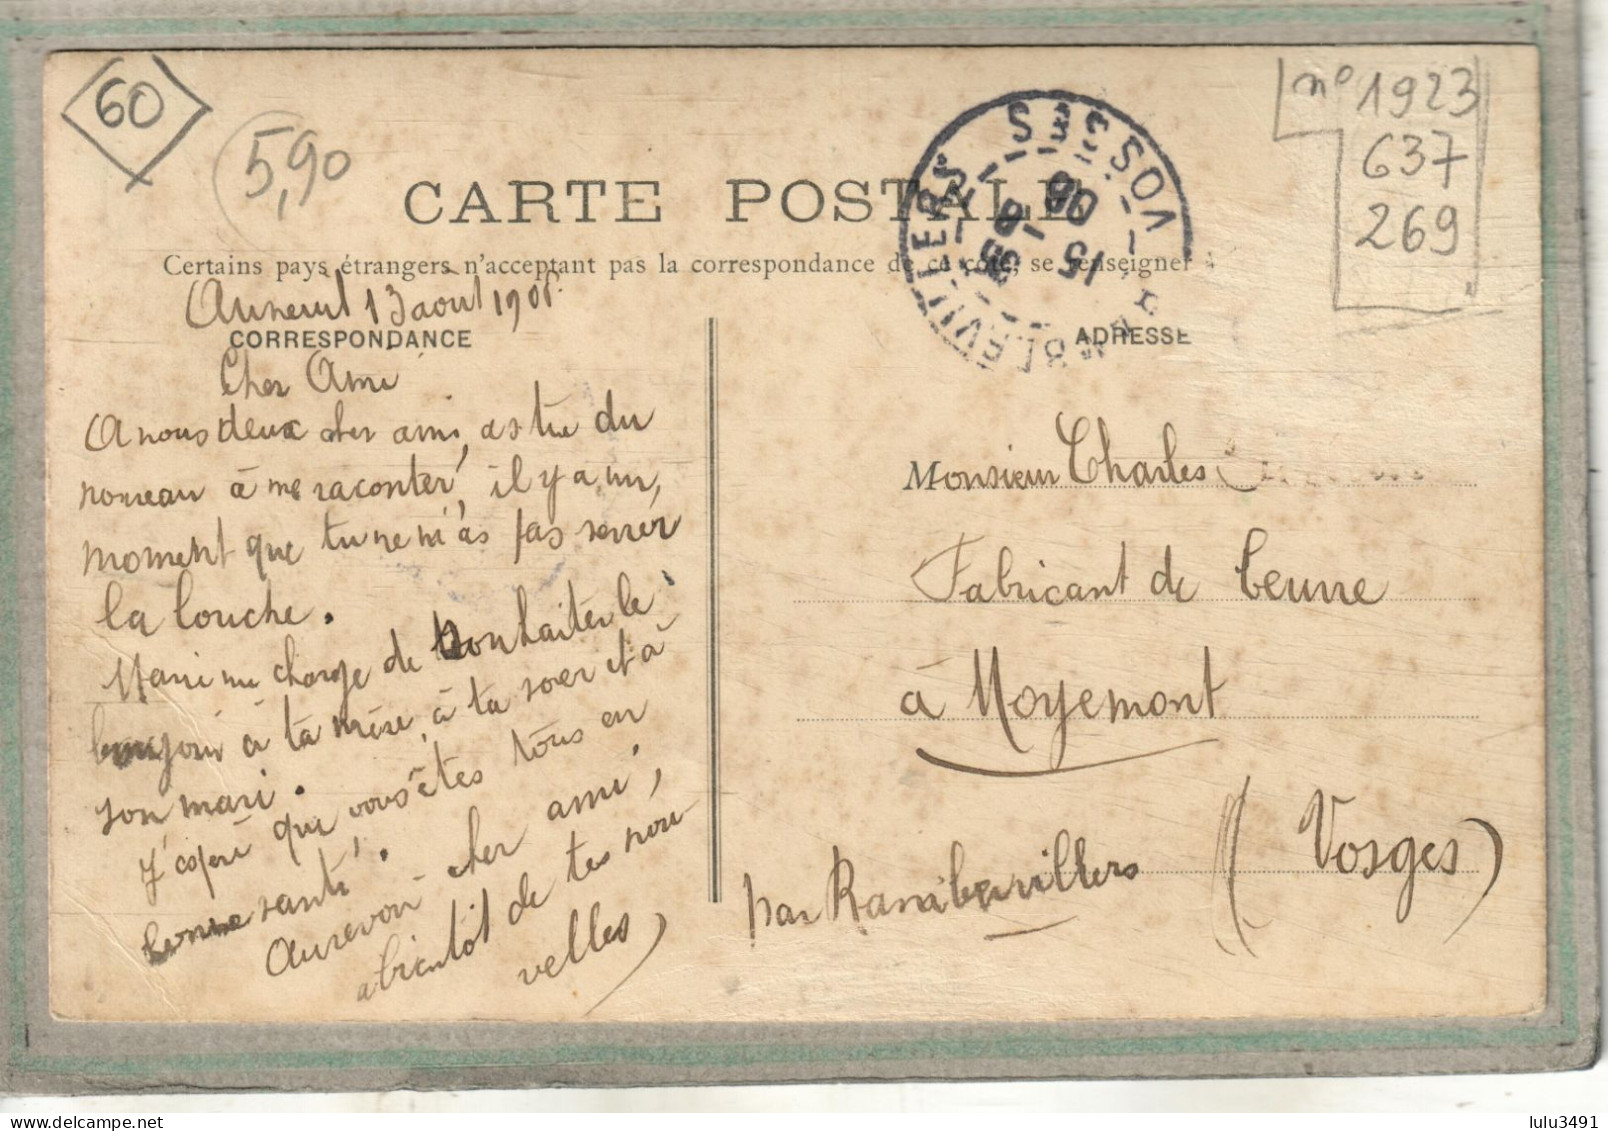 60
5,90
n° 1923
637
269
CARTE POSTALE
Certains pays étrangers n'acceptant pas la correspondance de ce côté, se renseigner
VOSGES
15 - 8
08
Auneuil 13 aout 190
CORRESPONDANCE
ADRESSE
Cher Ami
A nous deux cher ami, as tu du
nouveau à me raconter, il y a un,
moment que tu ne m'as pas serrer
la louche.
Marie me charge de souhaiter le
bonjour à ta mère, à ta soeur et à
son mari.
J'espère que vous êtes tous en
bonne santé.
Aurevoir cher ami,
a bientôt de tes nou
velles)
Monsieur Charles
Fabricant de beurre
à Moyemont
par Rambervillers (Vosges)
lulu3491